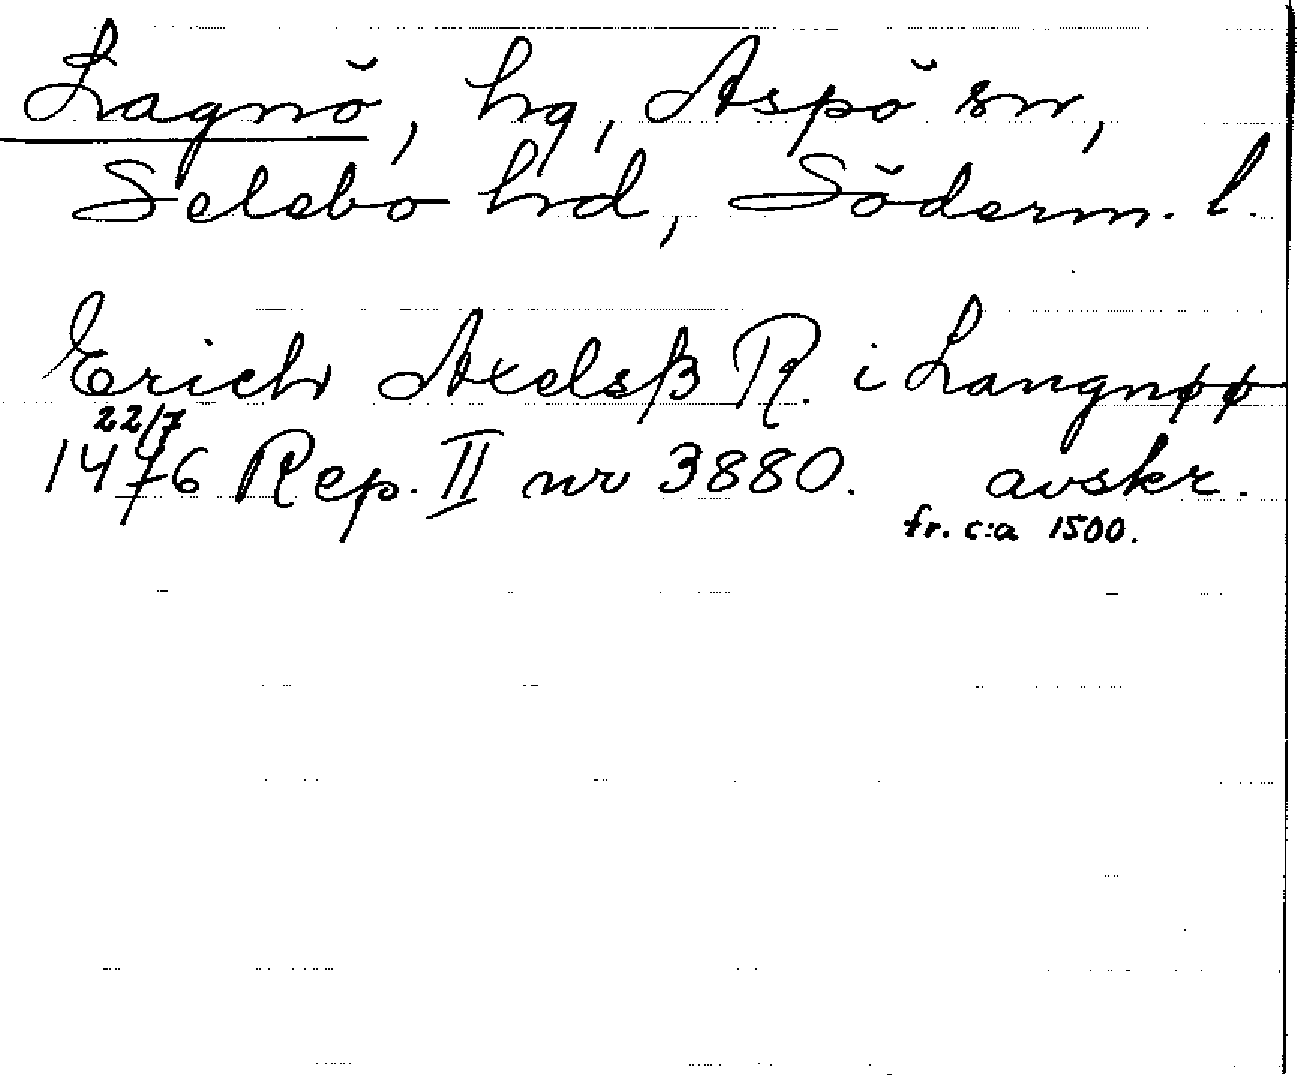 Lagnö, hg, Aspö sn,
Selebo hrd, Söderm. l.
Erich Axelsß R. i Langnøø
22/7
1476 Rep. II nr 3880. avskr.
fr. c:a 1500.